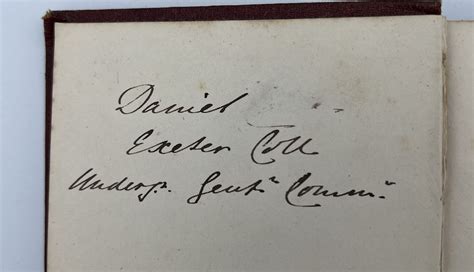 Daniel
Exeter Coll
Undergr. Gentn. Commr.